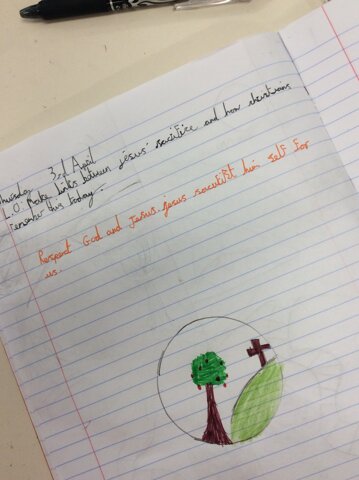 Thursday 3rd April
L.O. Make links between jesus' sacrifice and how christians
remember this today.
Respect God and Jesus. jesus sacrifist him self for
us.